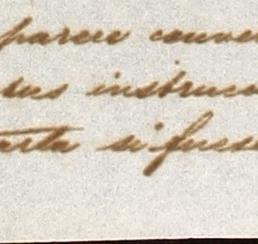 parece conve
sus instrucc
arta si fuese